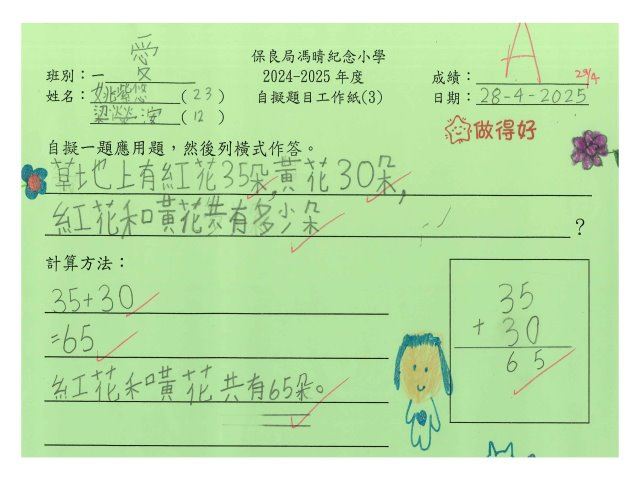 保良局馮晴紀念小學
2024-2025 年度
自擬題目工作紙(3)
班別：一 愛
成績： A
29/4
姓名： (23)
(12)
日期： 28-4-2025
做得好
自擬一題應用題，然後列橫式作答。
草地上有紅花35朵,黃花30朵,
紅花和黃花共有多少朵 ?
計算方法：
35+30
=65
紅花和黃花共有65朵。
35
+ 30
65